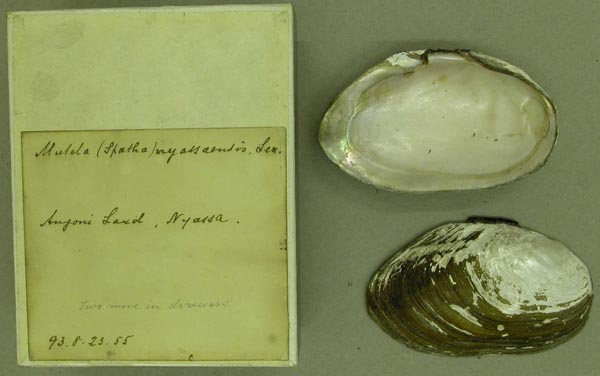 Mutela (Spatha) nyassaensis, Lea.
Angoni Land, Nyassa.
Two more in drawers
93.8.23.55